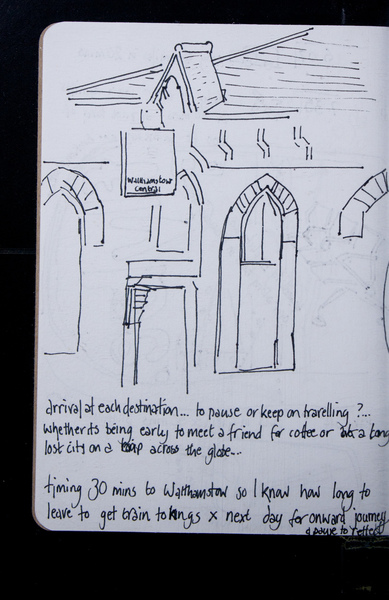 Walthamstow
Central
arrival at each destination... to pause or keep on travelling?...
whether its being early to meet a friend for coffee or at a long
lost city on a map across the globe...
timing 30 mins to Walthamstow so I know how long to
leave to get train to kings x next day for onward journey
& pause to reflect